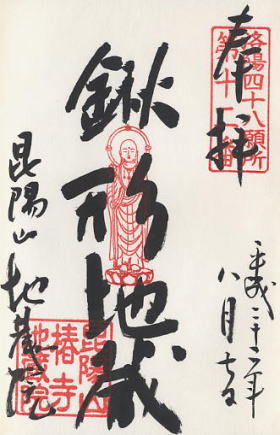 奉拝
洛陽四十八願所
第十二番
鍬形地蔵
昆陽山
椿寺
地蔵院
昆陽山 地蔵院
平成二十二年
八月七日